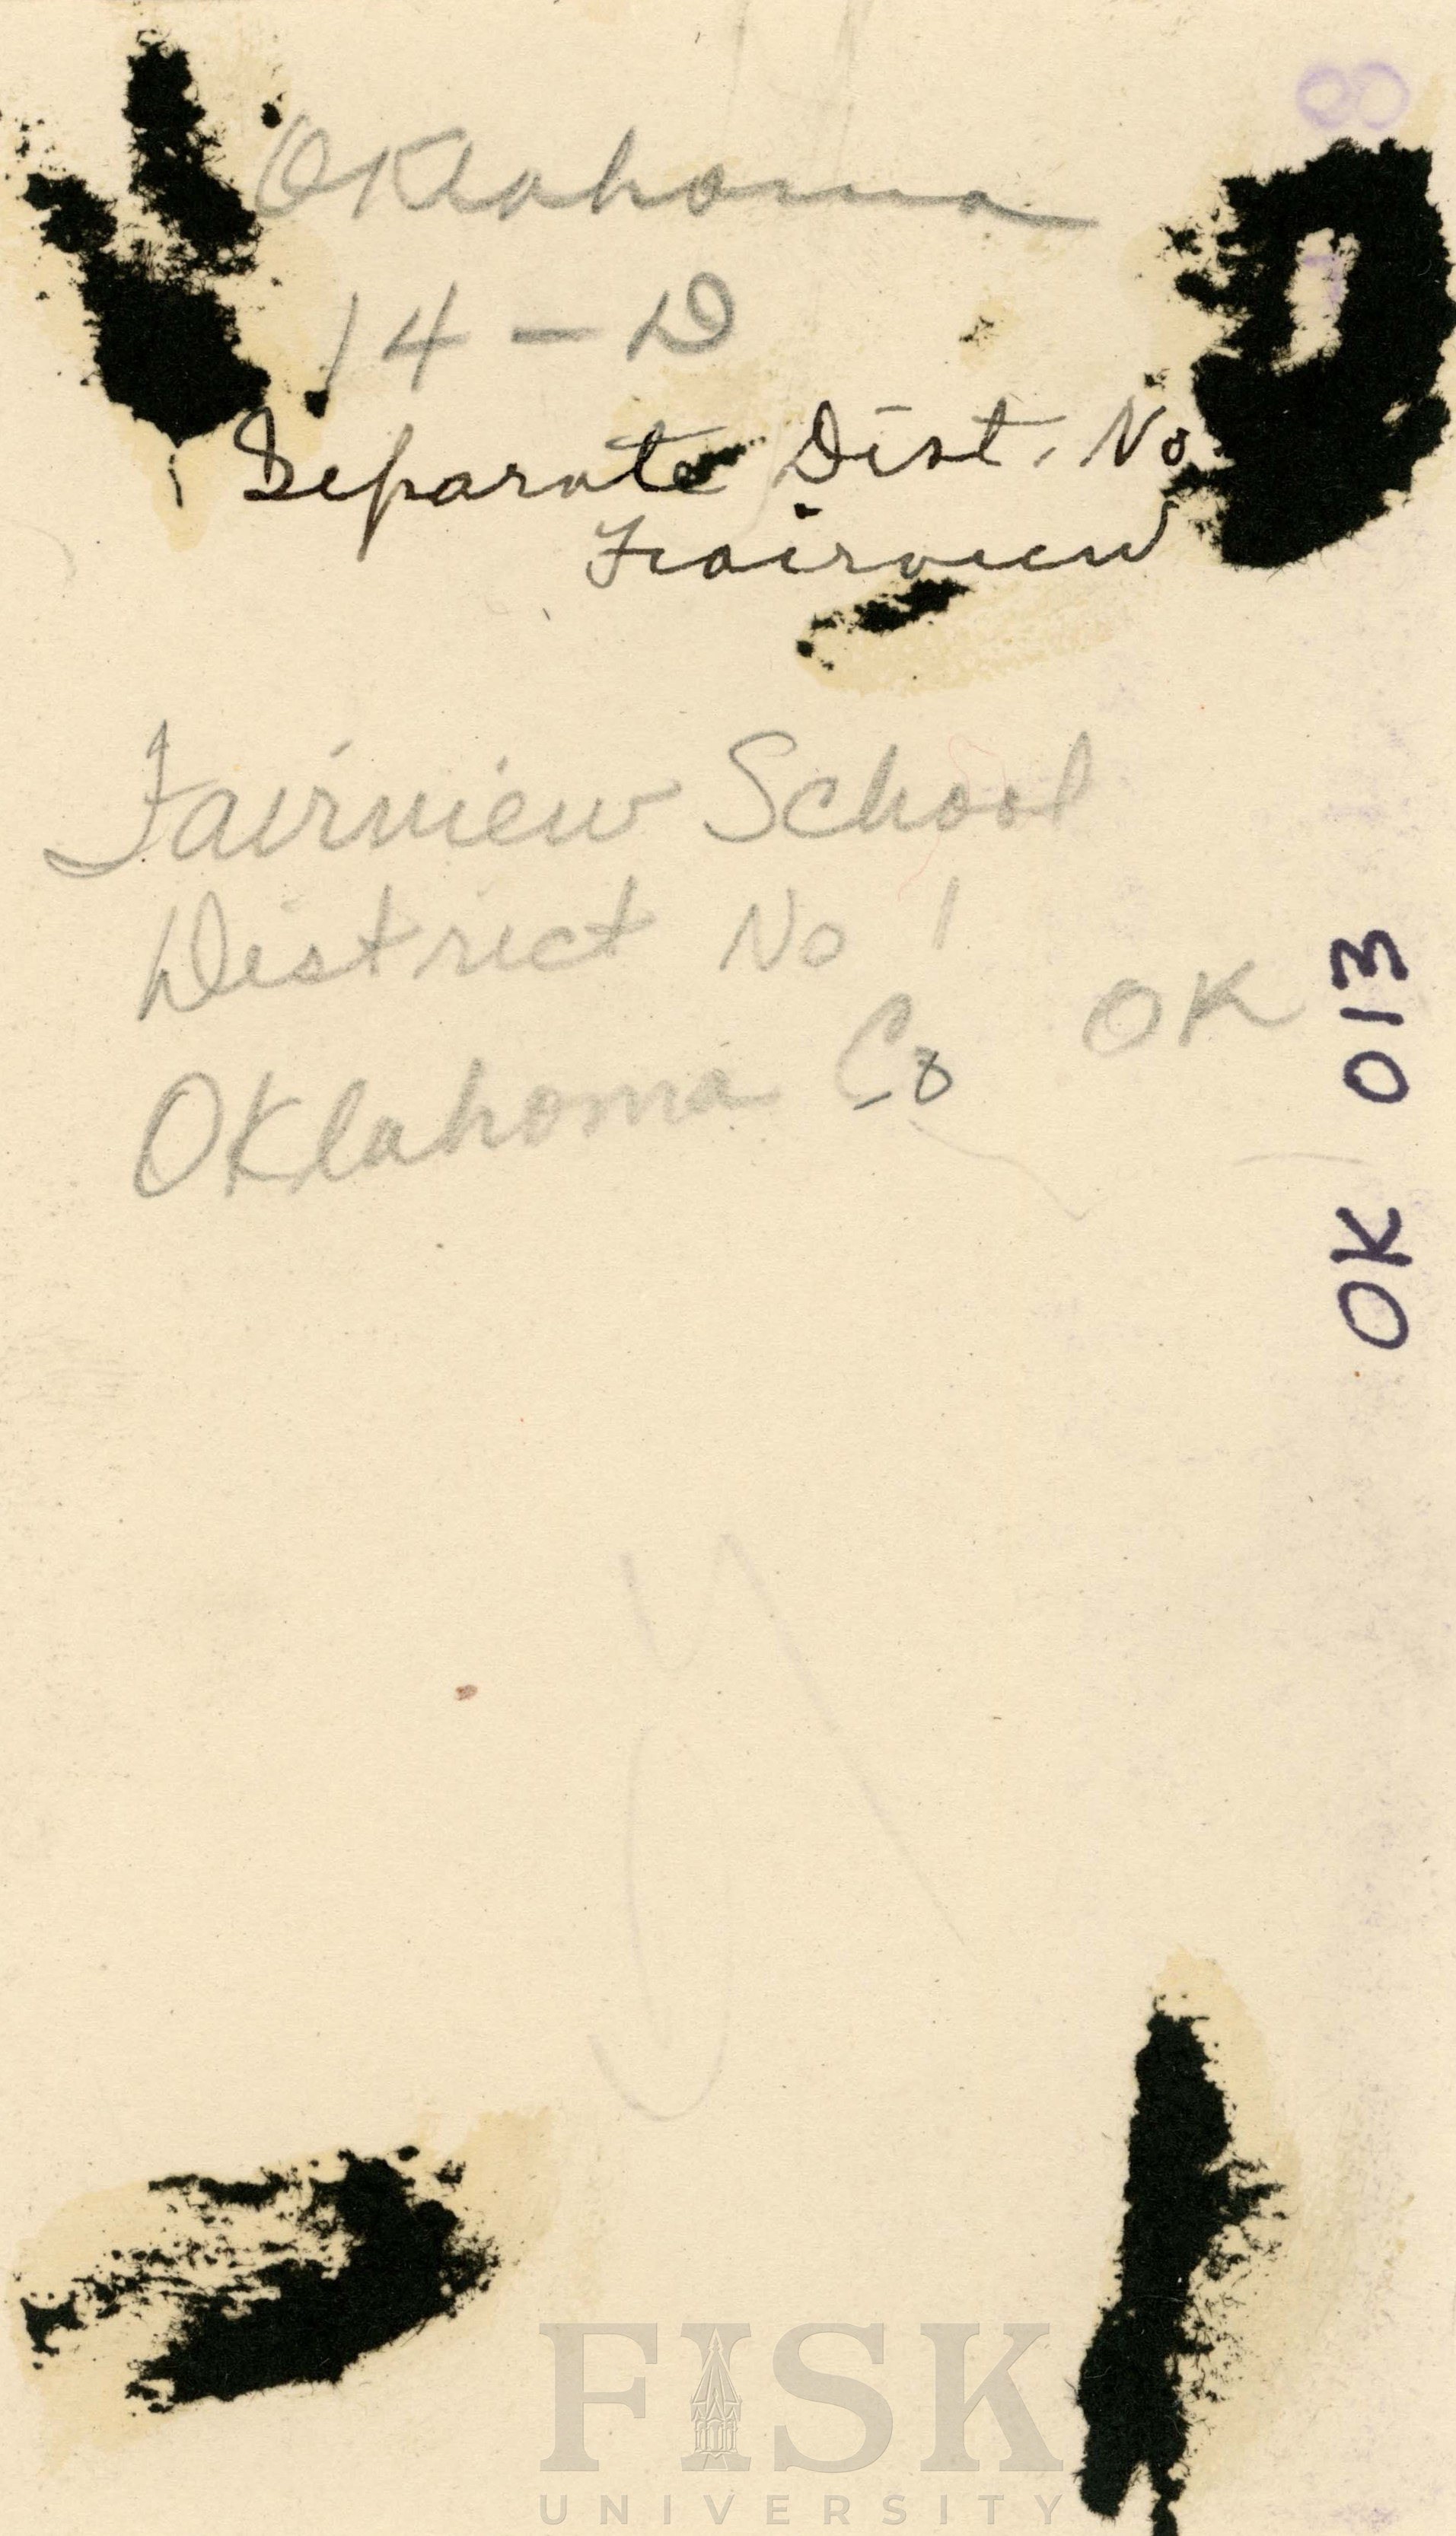 Oklahoma
14 - D
Separate Dist. No.
Fairview
Fairview School
District No 1
Oklahoma Co OK
OK 013
8
FISK
UNIVERSITY